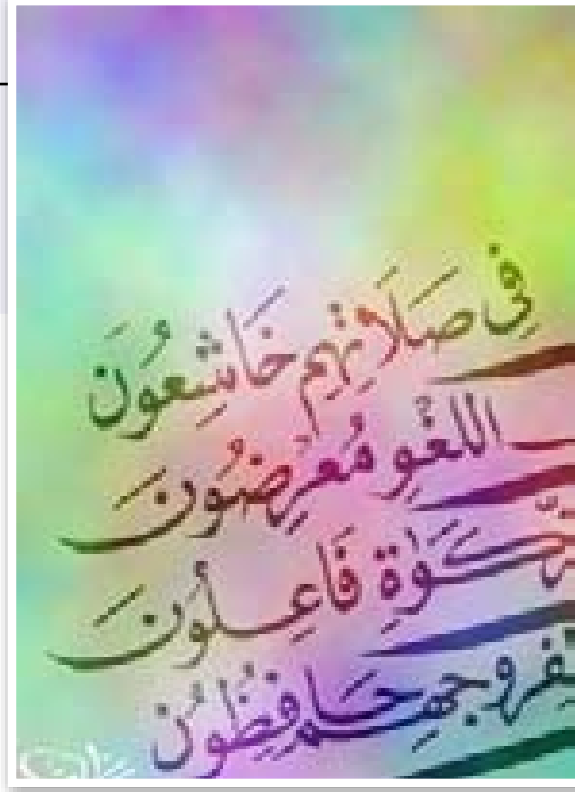 فِي صَلَاتِهِم خَاشِعُونَ
اللَّغْوِ مُعْرِضُونَ
فَاعِلُونَ
حَافِظُونَ